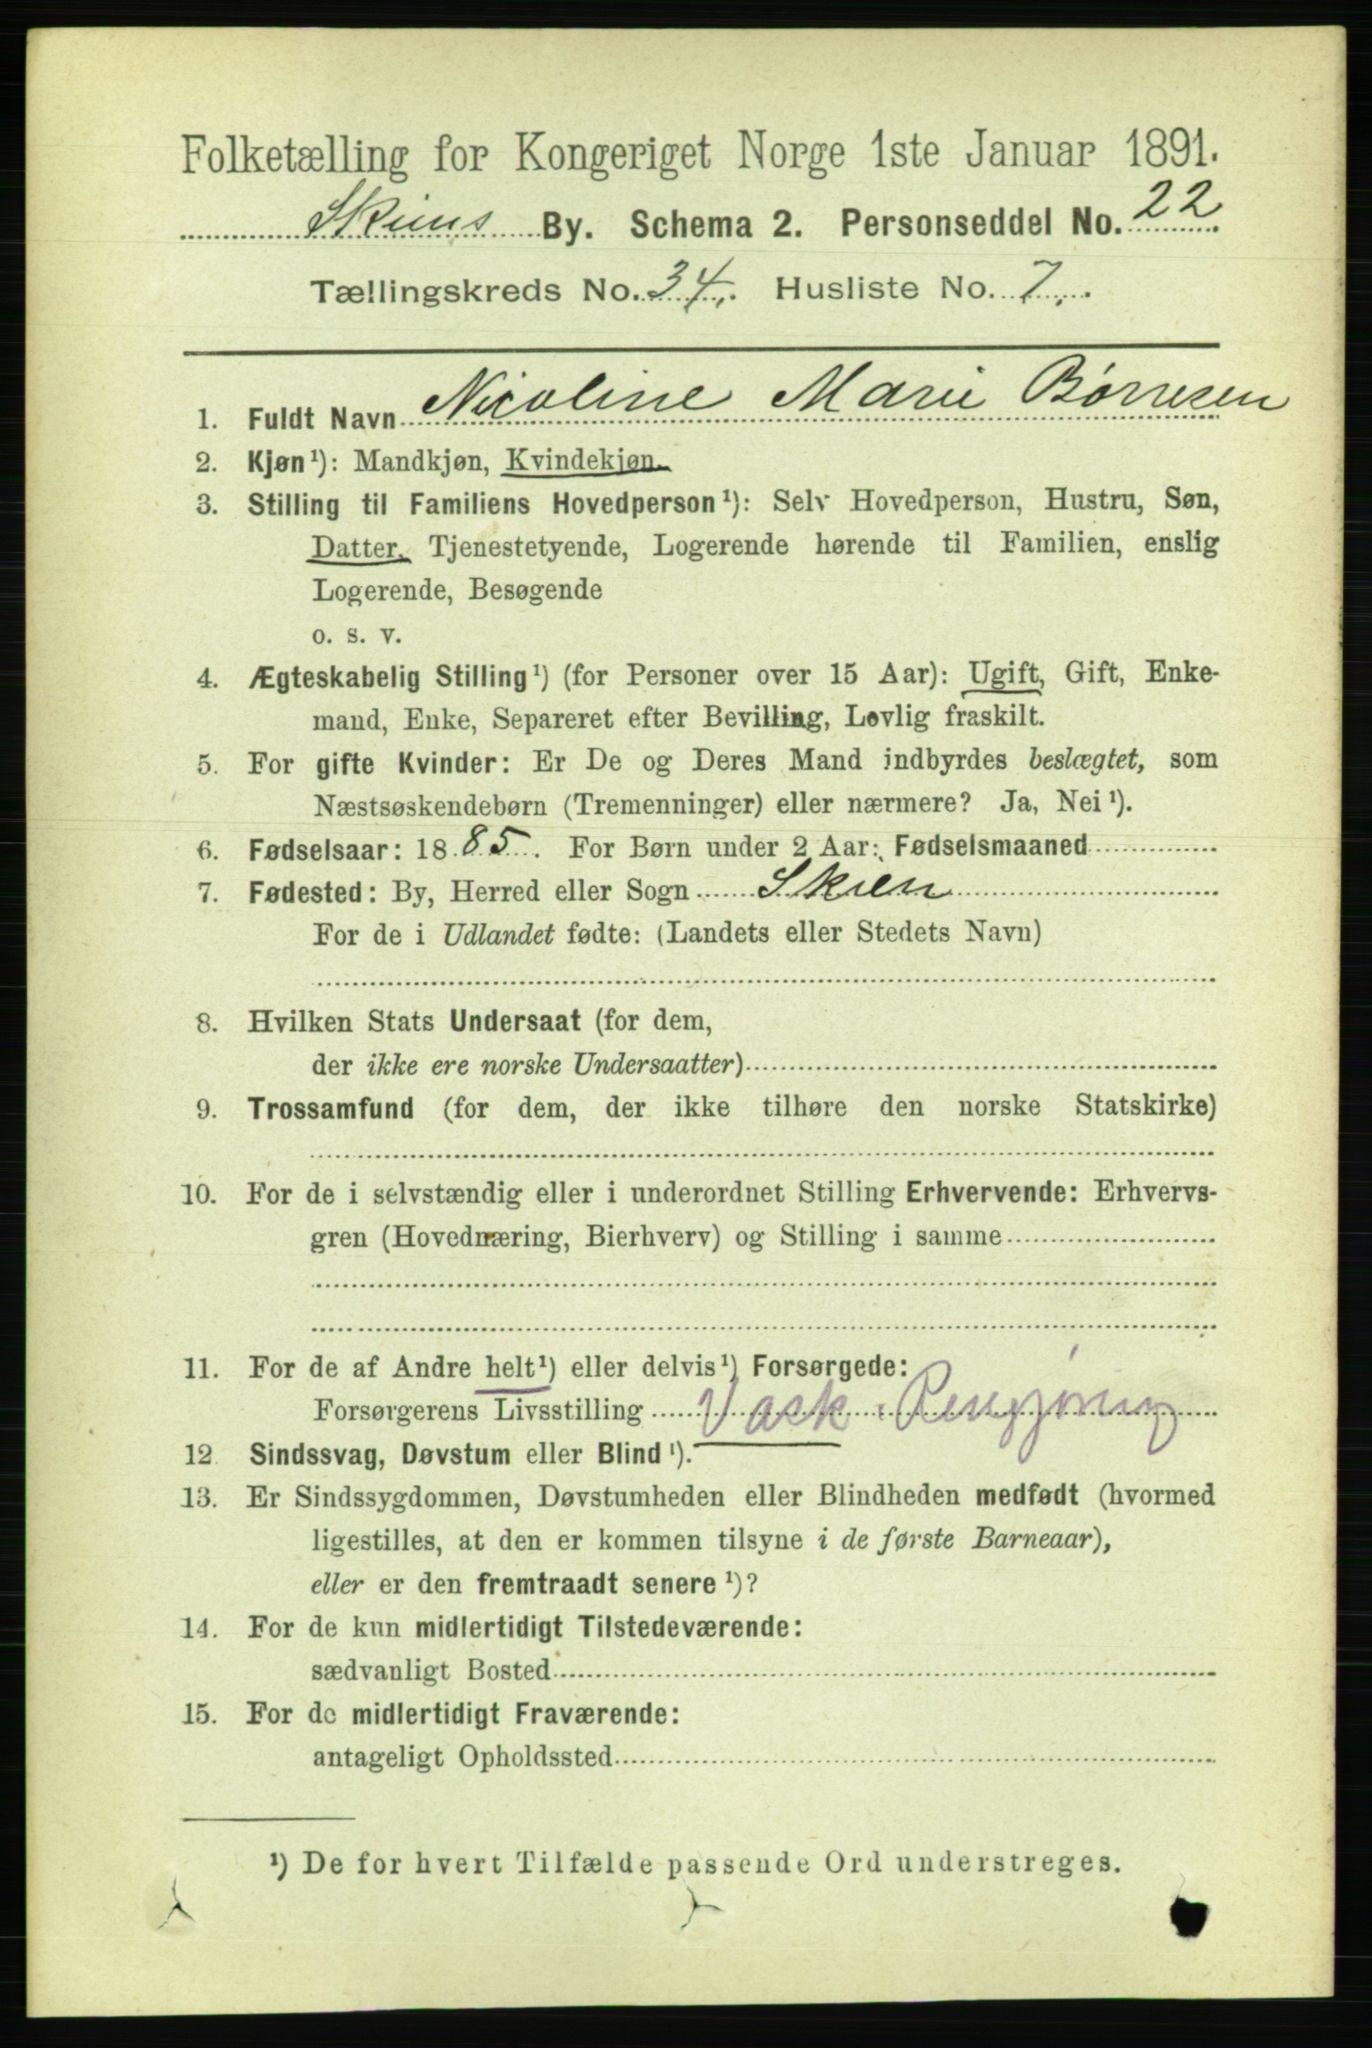 Folketælling for Kongeriget Norge 1ste Januar 1891.
Skiens By. Schema 2. Personseddel No. 22
Tællingskreds No. 34. Husliste No. 7.
1. Fuldt Navn Nicoline Marie Børresen
2. Kjøn¹): Mandkjøn, Kvindekjøn.
3. Stilling til Familiens Hovedperson¹): Selv Hovedperson, Hustru, Søn,
Datter, Tjenestetyende, Logerende hørende til Familien, enslig
Logerende, Besøgende
o. s. v.
4. Ægteskabelig Stilling¹) (for Personer over 15 Aar): Ugift, Gift, Enke-
mand, Enke, Separeret efter Bevilling, Lovlig fraskilt.
5. For gifte Kvinder: Er De og Deres Mand indbyrdes beslægtet, som
Næstsøskendebørn (Tremenninger) eller nærmere? Ja, Nei¹).
6. Fødselsaar: 1885. For Børn under 2 Aar: Fødselsmaaned
7. Fødested: By, Herred eller Sogn Skien
For de i Udlandet fødte: (Landets eller Stedets Navn)
8. Hvilken Stats Undersaat (for dem,
der ikke ere norske Undersaatter)
9. Trossamfund (for dem, der ikke tilhøre den norske Statskirke)
10. For de i selvstændig eller i underordnet Stilling Erhvervende: Erhvervs-
gren (Hovednæring, Bierhverv) og Stilling i samme
11. For de af Andre helt¹) eller delvis¹) Forsørgede:
Forsørgerens Livsstilling Vask. Rengjøring
12 Sindssvag, Døvstum eller Blind¹).
13. Er Sindssygdommen, Døvstumheden eller Blindheden medfødt (hvormed
ligestilles, at den er kommen tilsyne i de første Barneaar),
eller er den fremtraadt senere¹)?
14. For de kun midlertidigt Tilstedeværende:
sædvanligt Bosted
15. For de midlertidigt Fraværende:
antageligt Opholdssted
¹) De for hvert Tilfælde passende Ord understreges.